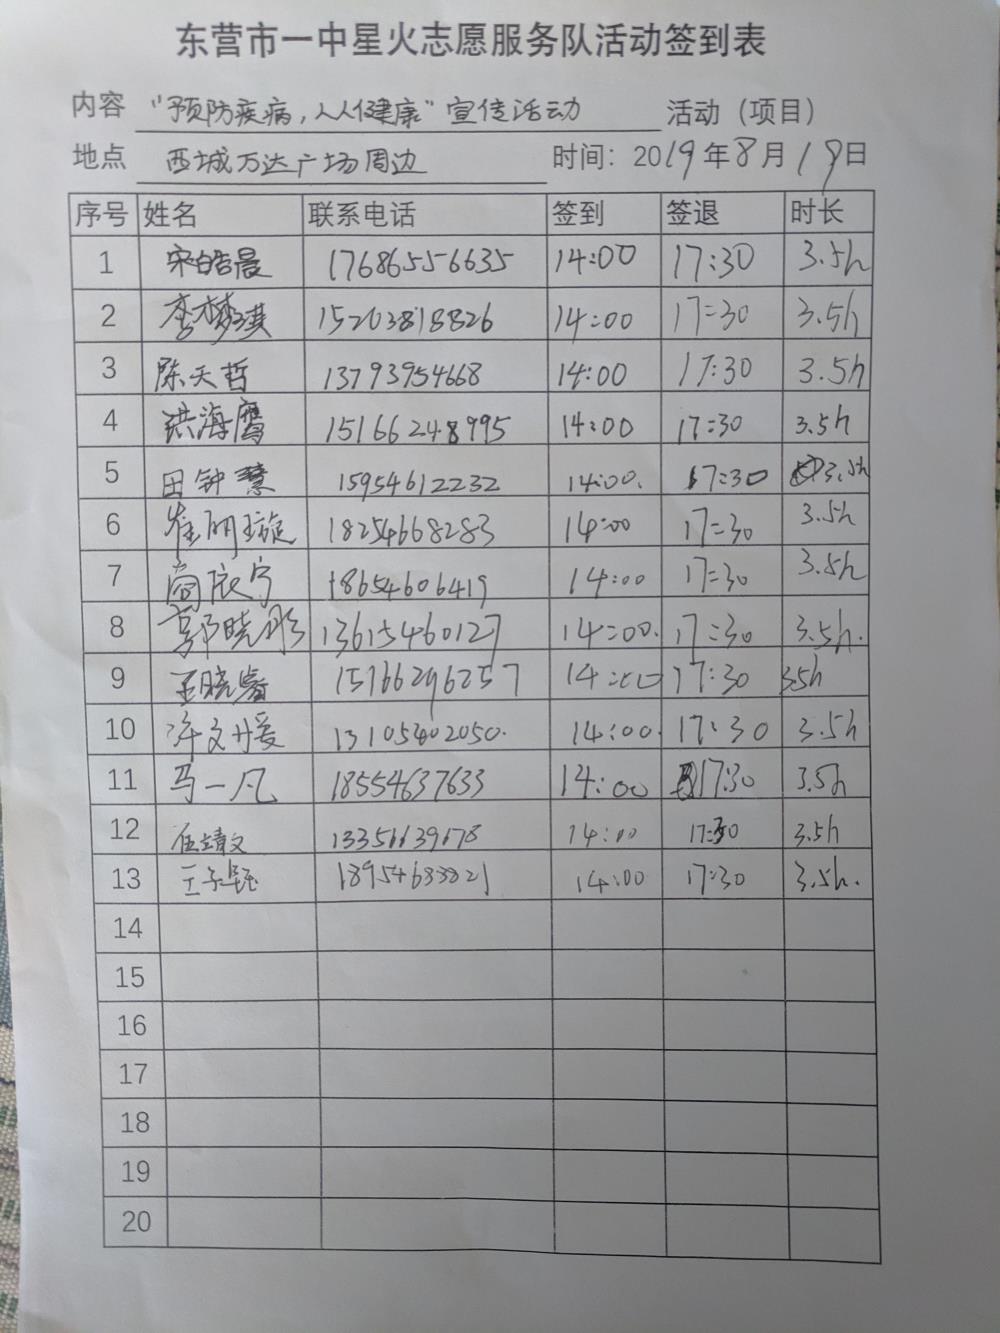 东营市一中星火志愿服务队活动签到表
内容 “预防疾病，人人健康”宣传活动 活动（项目）
地点 西城万达广场周边 时间：2019年8月19日
序号 姓名 联系电话 签到 签退 时长
1 宋皓晨 17686556635 14:00 17:30 3.5h
2 李梦琪 15203818826 14:00 17:30 3.5h
3 陈天哲 13793954668 14:00 17:30 3.5h
4 洪海鹰 15166248995 14:00 17:30 3.5h
5 田钟慧 15954612232 14:00. 17:30 3.5h
6 崔明璇 18254668283 14:00 17:30 3.5h
7 18654606419 14:00 17:30 3.5h
8 郭晓彤 13615460127 14:00. 17:30 3.5h.
9 王晓睿 15166296257 14:00 17:30 3.5h
10 许文媛 13105402050. 14:00. 17:30 3.5h
11 马一凡 18554637633 14:00 17:30 3.5h
12 任靖文 14:00 17:30 3.5h
13 18954683821 14:00 17:30 3.5h.
14
15
16
17
18
19
20